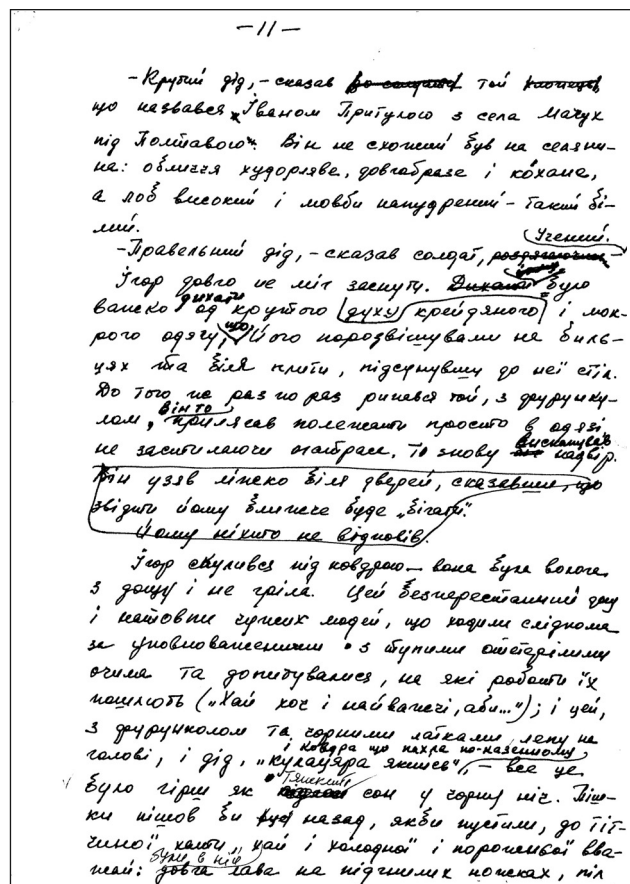 -11-
-Крутий дід,-сказав той
що назвався Іваном Притулою з села Мачух
під Полтавою. Він не схожий був на селяни-
на: обличчя худорляве, довгобразе і кохане,
а лоб високий і мовби напудрений-такий бі-
лий.
Учений.
-Правельний дід,-сказав солдат,
Ігор довго не міг заснути. було
важко дихати од крутого духу крейдяного і мок-
рого одягу, що його порозвішували на биль-
цях та біля плити, підсунувши до неї стіл.
До того ж раз по раз рипався той, з фурунку-
лом, він то приляжав полежати просто в одязі
не застилаючи матрац, то знову вискакував надвір.
Він узяв ліжко біля дверей, сказавши, що
звідти йому ближче буде „бігати".
Йому ніхто не відповів.
Ігор скулився під ковдрою-вона була волога
з дощу і не гріла. Цей безперестанний дощ
і натовпи чужих людей, що ходили слідком
за уповноваженими з тупими отетерілими
очима та допитувались, на які роботи їх
пошлють („Хай хоч і найважчі, аби..."); і цей,
з фурунколом та чорними латками лепу на
голові, і ковдра що пахла по-казенному, і дід, „кулацяра якийсь",-все це
було гірш як тяжкий сон у чорну ніч. Піш-
ки пішов би назад, якби пустили, до тіт-
чиної хати, хай і холодної і порожньої вва-
жай: були в ній лава на підгнилих ножках, піл